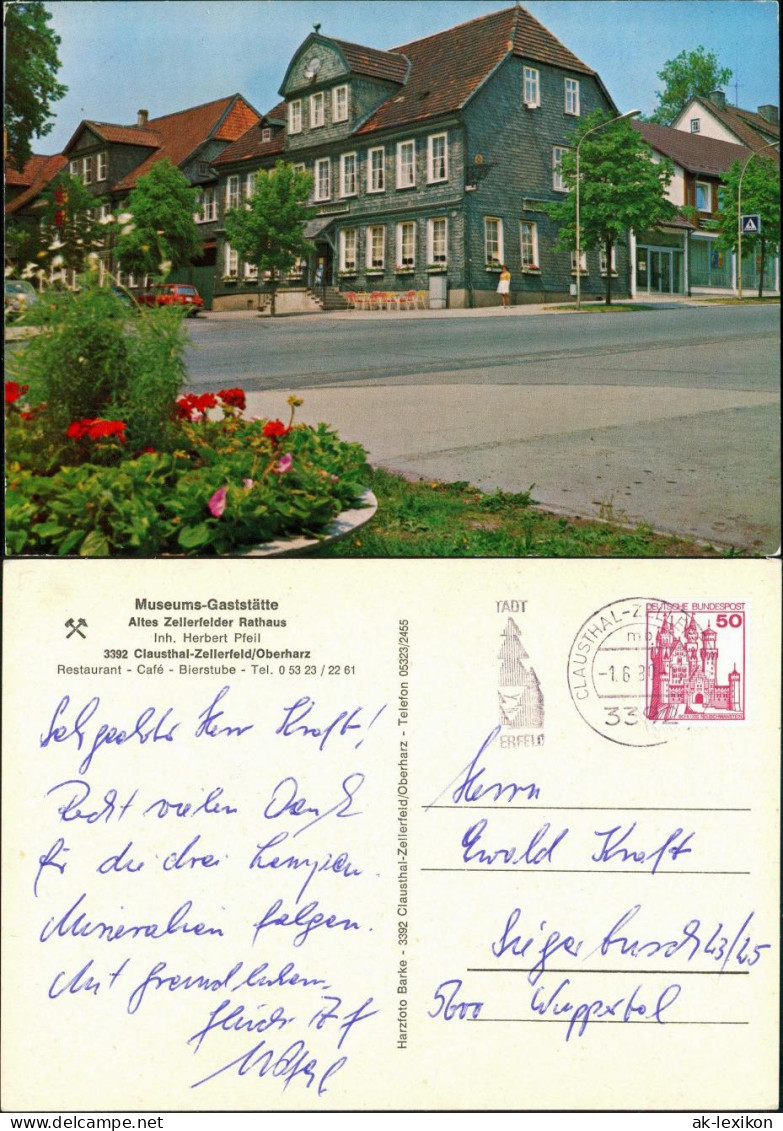 Museums-Gaststätte
Altes Zellerfelder Rathaus
Inh. Herbert Pfeil
3392 Clausthal-Zellerfeld/Oberharz
Restaurant - Café - Bierstube - Tel. 0 53 23 / 22 61
Sehr geehrter Herr Kraft!
Recht vielen Dank
für die drei Lampen.
Mineralien folgen.
Mit freundlichem
Glück
Harzfoto Barke - 3392 Clausthal-Zellerfeld/Oberharz - Telefon 05323/2455
TADT
ERFELD
CLAUSTHAL-ZELLERF
-1.6.80
339
DEUTSCHE BUNDESPOST
50
Herrn
Ewald Kraft
Siegersbusch 43/45
5600 Wuppertal
© ak-lexikon.de
ak-lexikon